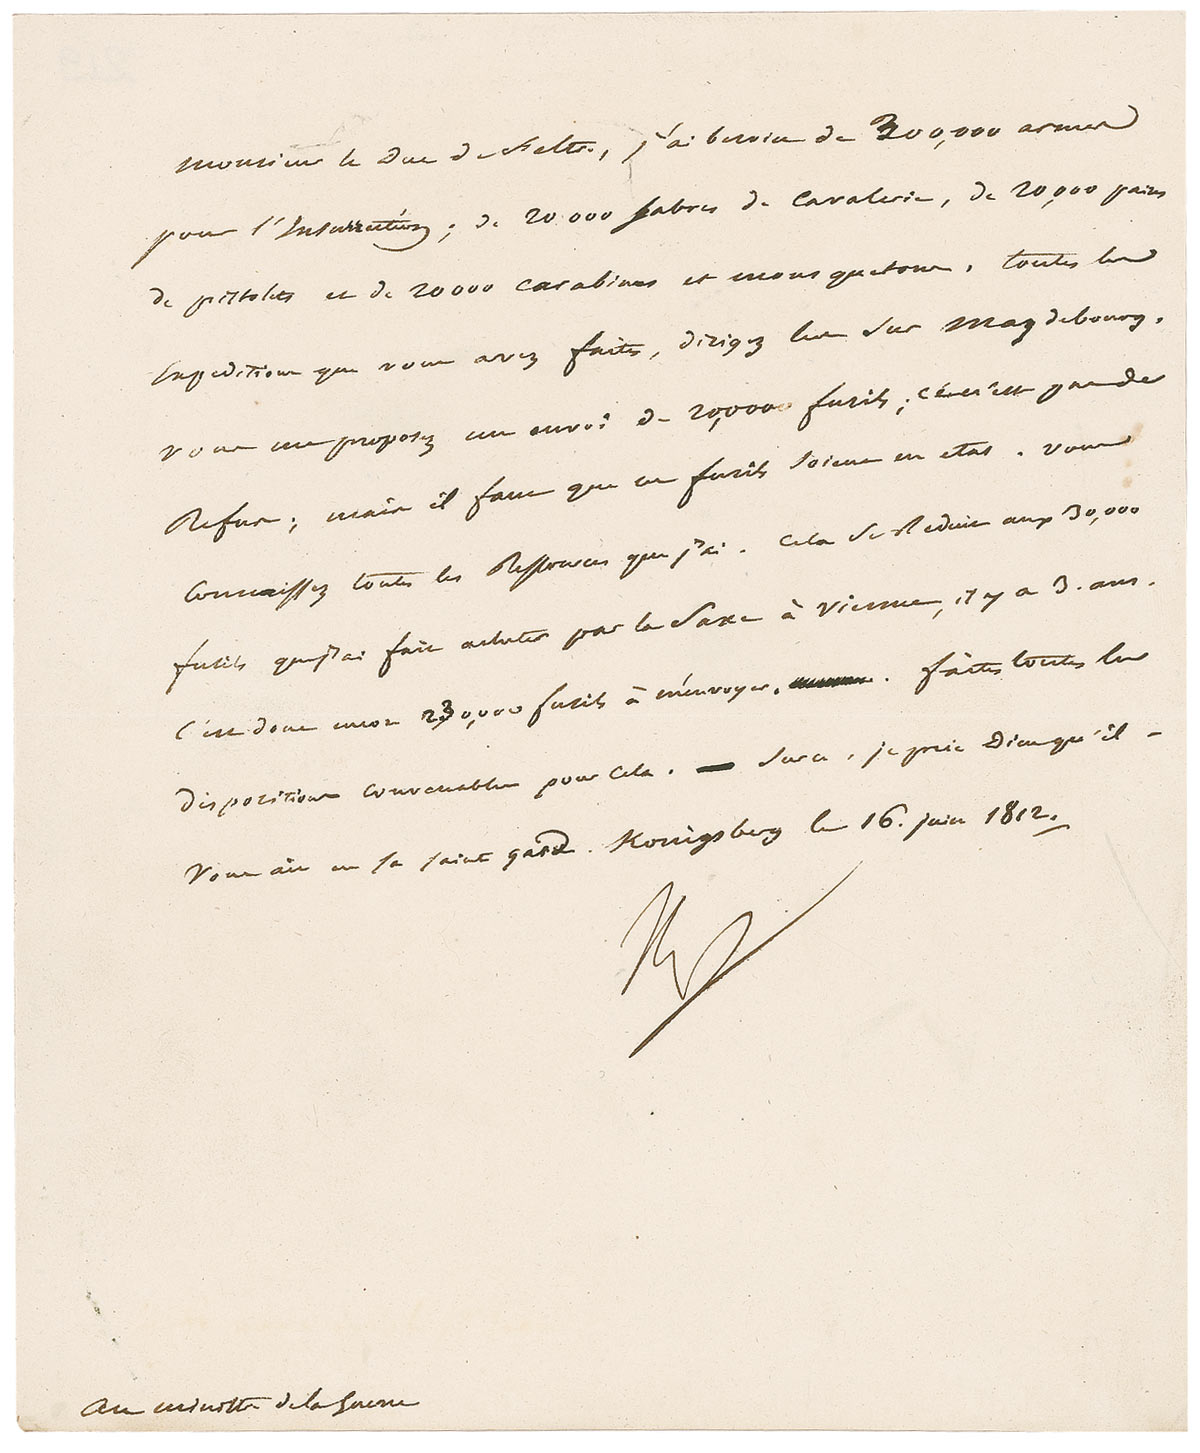 Monsieur le Duc de Feltre, j'ai besoin de 300,000 armes
pour l'Insurrection; de 20 000 sabres de Cavalerie, de 20,000 paires
de pistolets et de 20 000 carabines et mousquetons. toutes les
expeditions que vous avez faites, dirigez les sur Magdebourg.
vous me proposez un envoi de 20,000 fusils; ce n'est pas de
Refus; mais il faut que ces fusils soient en etat. vous
connaissez toutes les Ressources que j'ai. Cela se Reduit aux 30,000
fusils que j'ai fait acheter par la Saxe à Vienne, il y a 3. ans.
C'est donc encor 230,000 fusils à m'envoyer. faites toutes les
dispositions convenables pour cela. — Sur ce, je prie Dieu qu'il -
Vous ait en sa sainte garde. Königsberg le 16. juin 1812.
Np
Au ministre de la Guerre